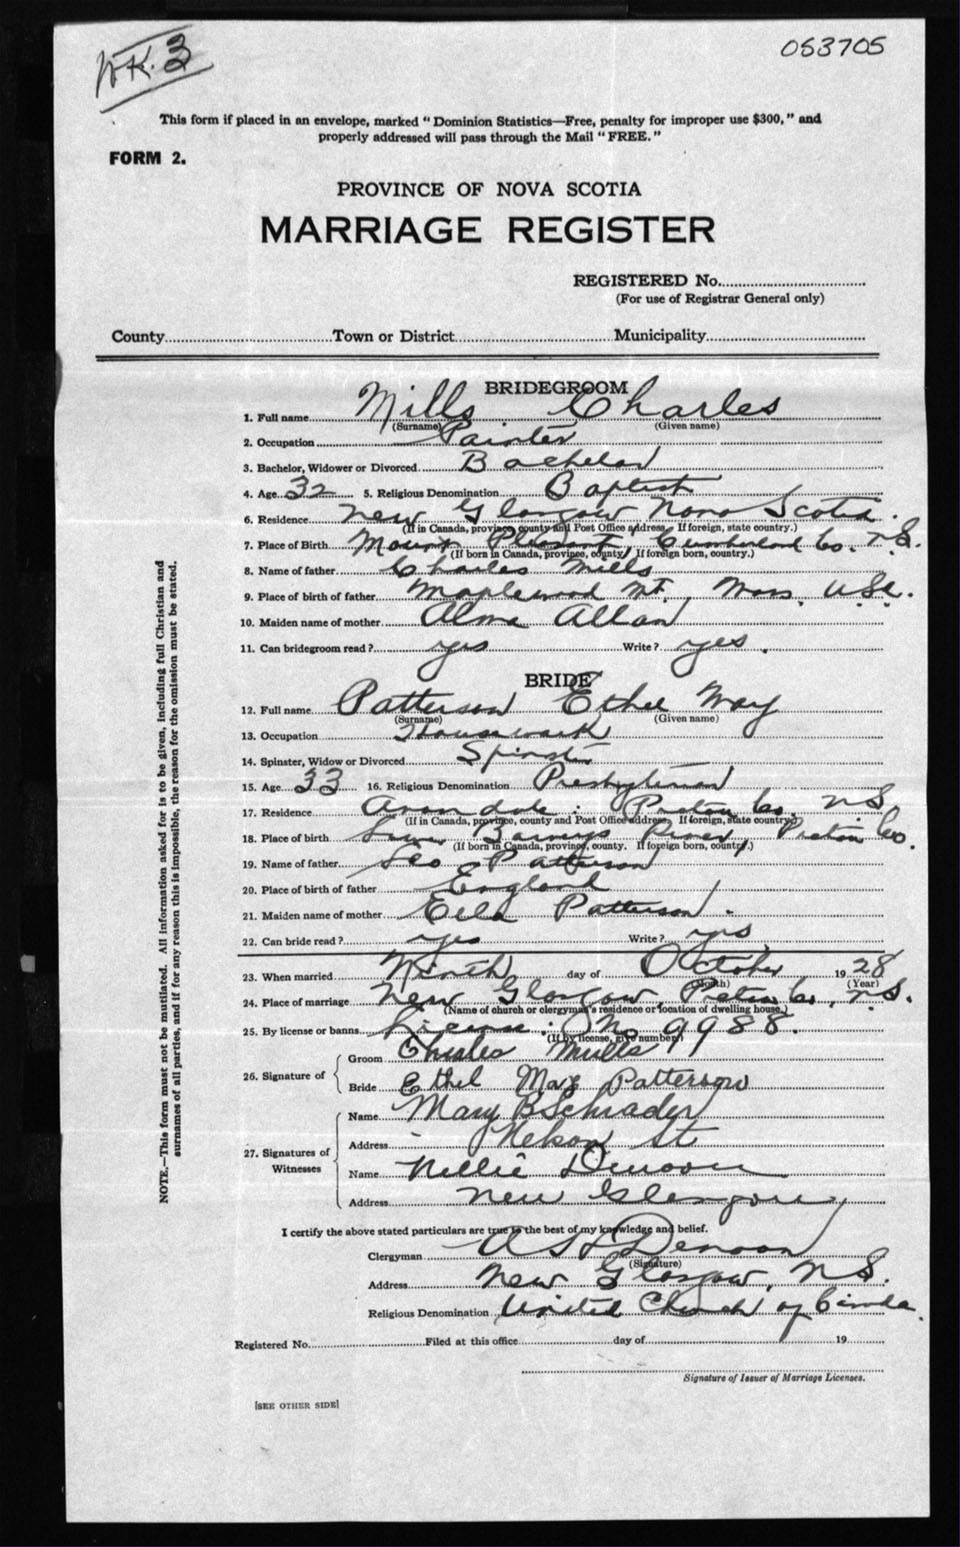 053705
This form if placed in an envelope, marked "Dominion Statistics—Free, penalty for improper use $300," and
properly addressed will pass through the Mail "FREE."
FORM 2.
PROVINCE OF NOVA SCOTIA
MARRIAGE REGISTER
REGISTERED No.
(For use of Registrar General only)
County Town or District Municipality
BRIDEGROOM
1. Full name Mills Charles
(Surname) (Given name)
2. Occupation Painter
3. Bachelor, Widower or Divorced Bachelor
4. Age 32 5. Religious Denomination Baptist
6. Residence New Glasgow Nova Scotia.
(If in Canada, province, county and Post Office address. If foreign, state country.)
7. Place of Birth Mount Pleasant, Cumberland Co. N.S.
(If born in Canada, province, county. If foreign born, country.)
8. Name of father Charles Mills
9. Place of birth of father Maplewood Mt., Mass. USA.
10. Maiden name of mother Alma Allan
11. Can bridegroom read? yes Write? yes.
BRIDE
12. Full name Patterson Ethel May
(Surname) (Given name)
13. Occupation Housework
14. Spinster, Widow or Divorced Spinster
15. Age 33 16. Religious Denomination Presbyterian
17. Residence Avondale. Pictou Co. N.S.
(If in Canada, province, county and Post Office address. If foreign, state country.)
18. Place of birth Barneys River, Pictou Co.
(If born in Canada, province, county. If foreign born, country.)
19. Name of father Geo Patterson
20. Place of birth of father England
21. Maiden name of mother Ella Patterson.
22. Can bride read? yes Write? yes
23. When married Ninth day of October 1928
(Month) (Year)
24. Place of marriage New Glasgow, Pictou Co., N.S.
(Name of church or clergyman's residence or location of dwelling house.)
25. By license or banns License. No 9988.
(If by license, give number)
26. Signature of
Groom Charles Mills
Bride Ethel May Patterson
27. Signatures of Witnesses
Name Mary B Schrader
Address Nelson St
Name Nellie Denoon
Address New Glasgow
I certify the above stated particulars are true to the best of my knowledge and belief.
Clergyman A S Denoon
(Signature)
Address New Glasgow, N.S.
Religious Denomination United Church of Canada.
Registered No. Filed at this office day of 19
Signature of Issuer of Marriage Licenses.
[SEE OTHER SIDE]
NOTE.—This form must not be mutilated. All information asked for is to be given, including full Christian and
surnames of all parties, and if for any reason this is impossible, the reason for the omission must be stated.